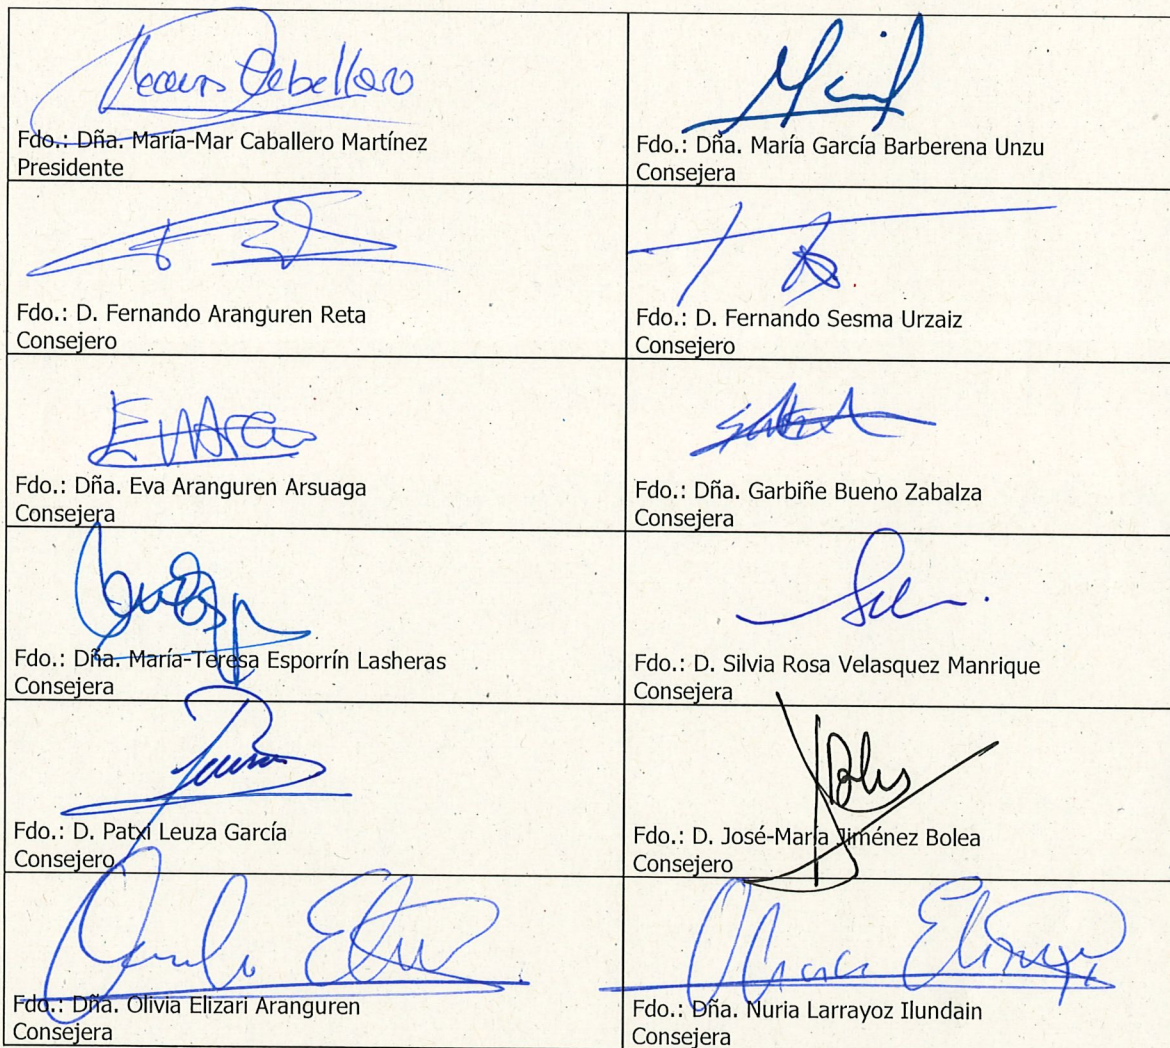 Fdo.: Dña. María-Mar Caballero Martínez
Presidente
Fdo.: Dña. María García Barberena Unzu
Consejera
Fdo.: D. Fernando Aranguren Reta
Consejero
Fdo.: D. Fernando Sesma Urzaiz
Consejero
Fdo.: Dña. Eva Aranguren Arsuaga
Consejera
Fdo.: Dña. Garbiñe Bueno Zabalza
Consejera
Fdo.: Dña. María-Teresa Esporrín Lasheras
Consejera
Fdo.: D. Silvia Rosa Velasquez Manrique
Consejera
Fdo.: D. Patxi Leuza García
Consejero
Fdo.: D. José-María Jiménez Bolea
Consejero
Fdo.: Dña. Olivia Elizari Aranguren
Consejera
Fdo.: Dña. Nuria Larrayoz Ilundain
Consejera